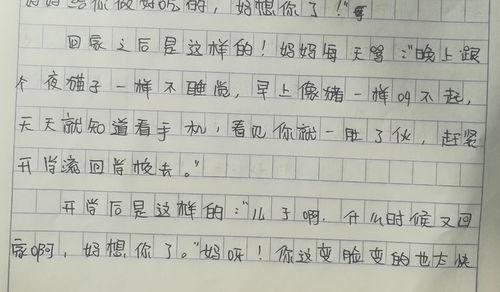 好好给你做好吃的，好想你了！"
回家之后是这样的！妈妈每天骂："晚上跟
个夜猫子一样不睡觉，早上像猪一样叫不起，
天天就知道看手机，看见你就一肚了伙，赶紧
开学滚回学校去。"
开学后是这样的："儿子啊，什么时候又回
家啊，好想你了。"妈呀！你这变脸变的也太快